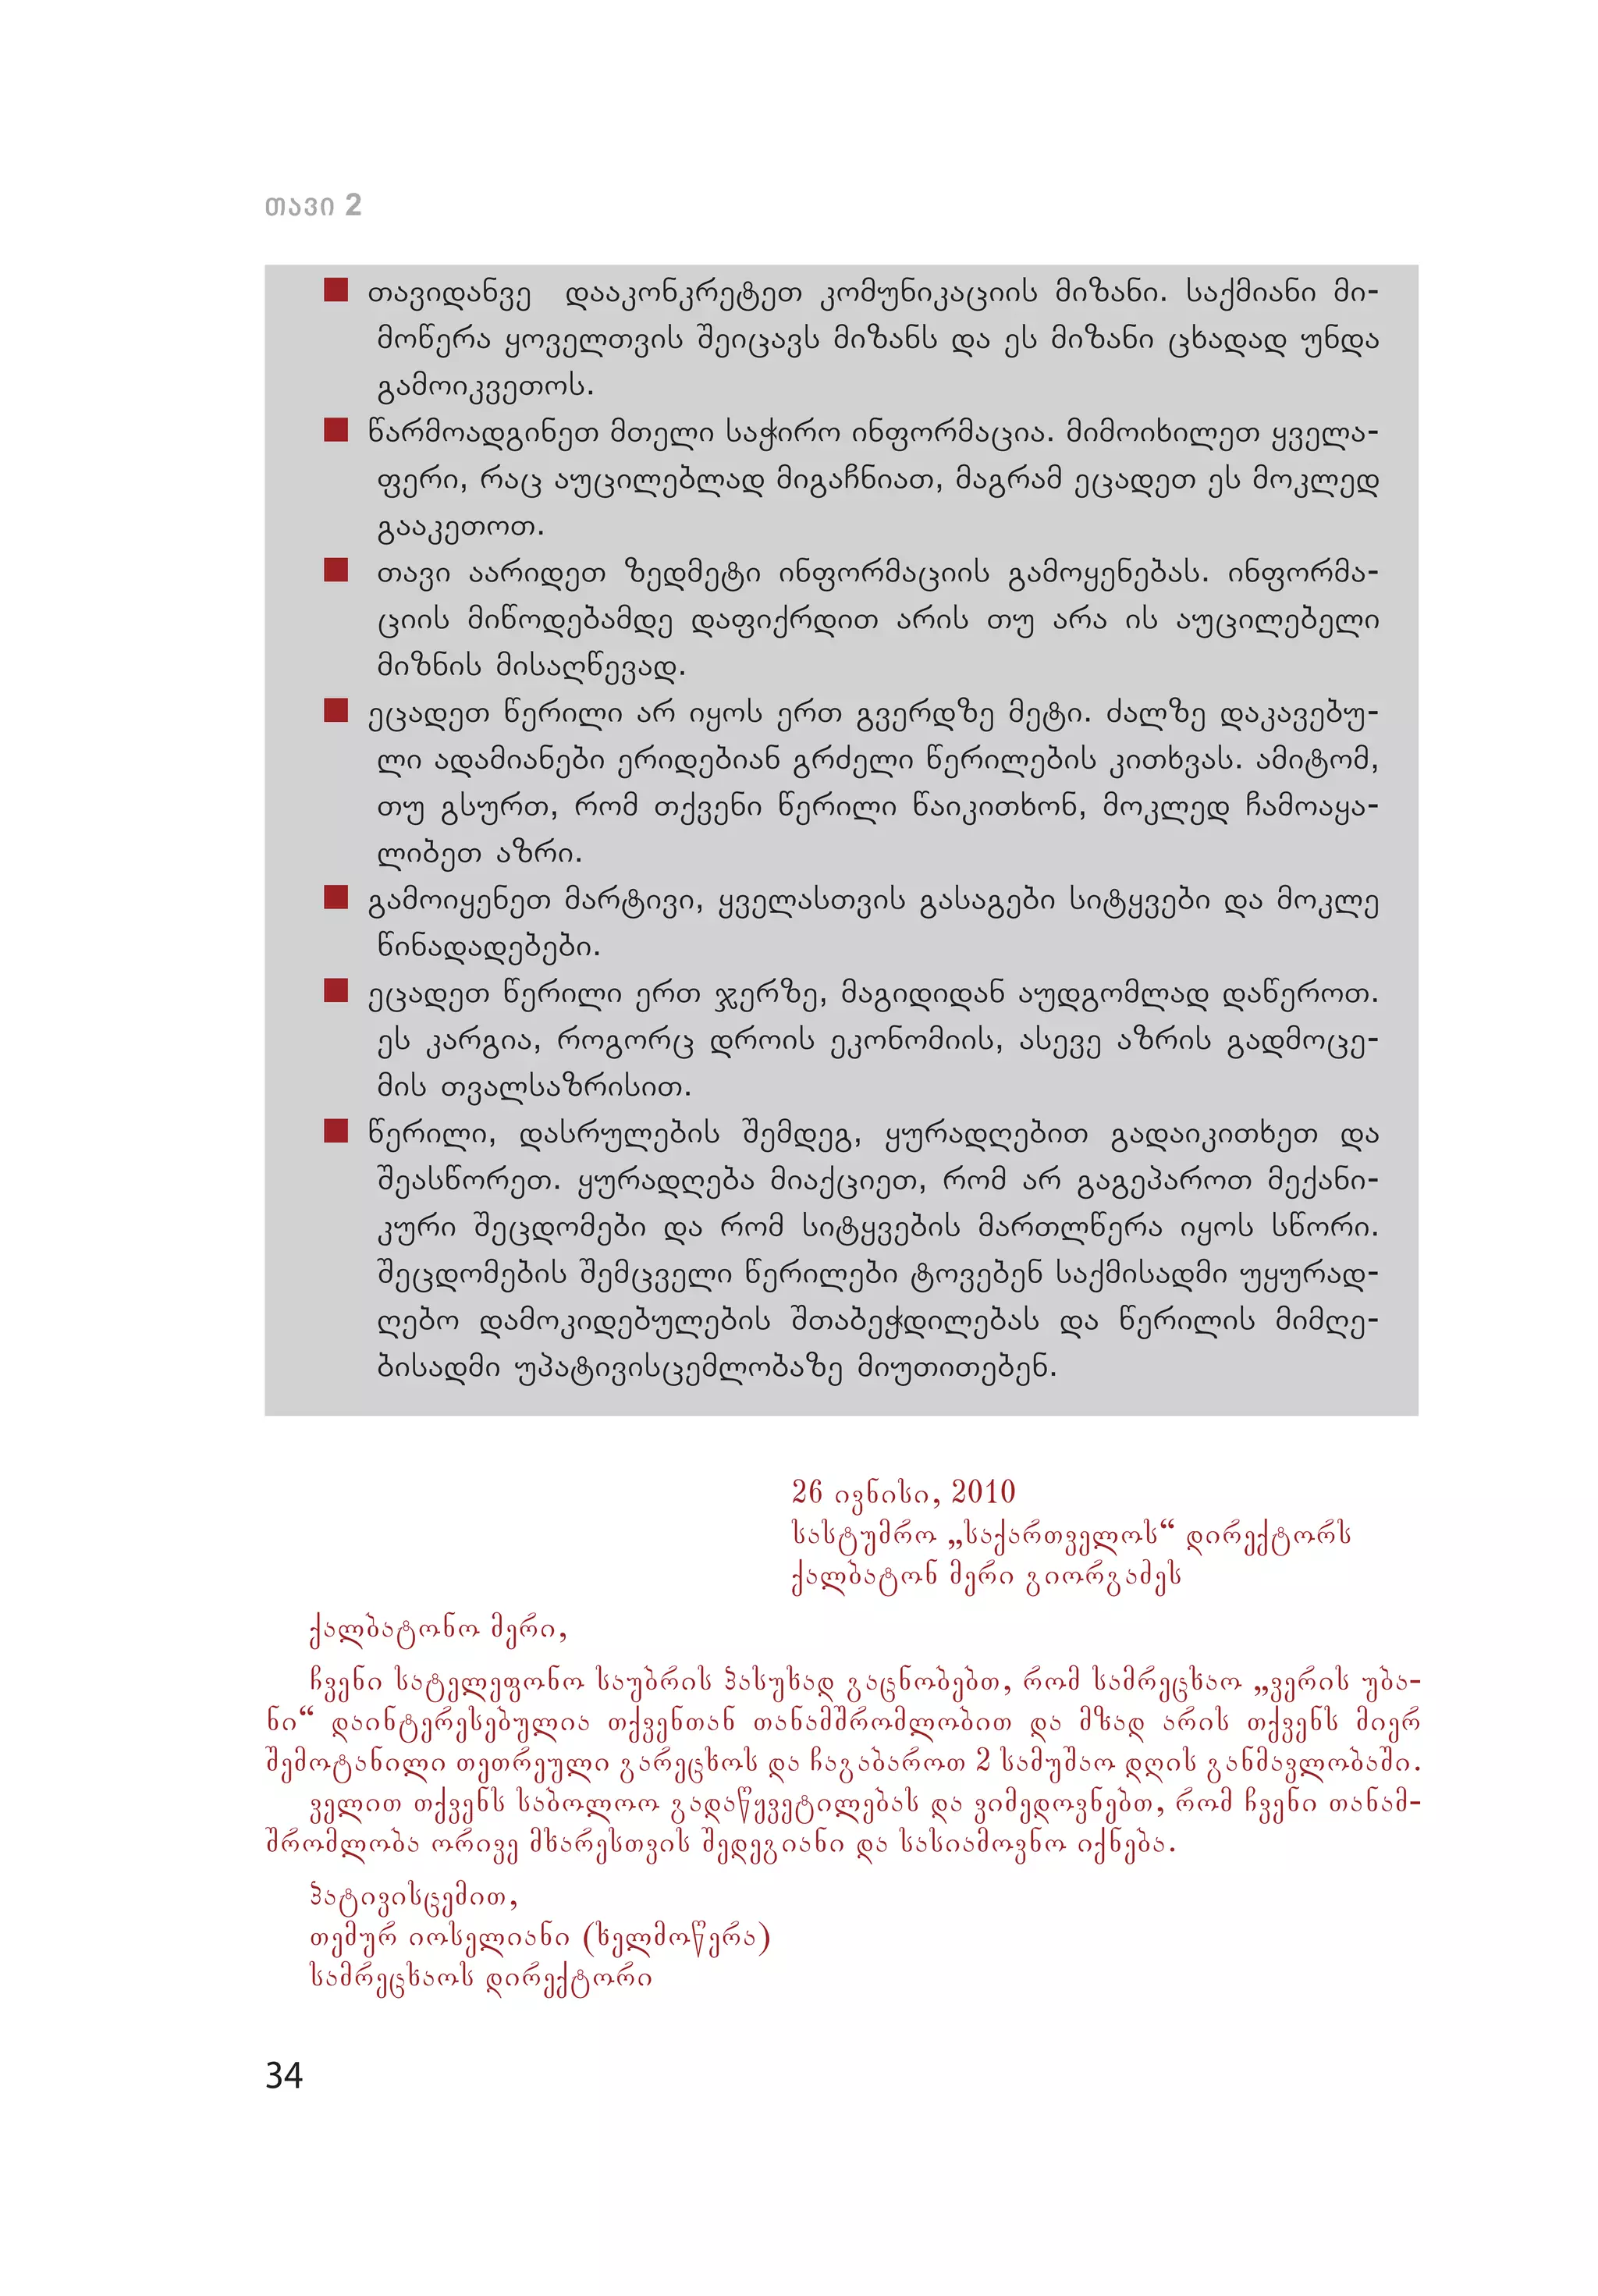 თავი 2
■ თავიდანვე დააკონკრეტეთ კომუნიკაციის მიზანი. საქმიანი მი-
მოწერა ყოველთვის შეიცავს მიზანს და ეს მიზანი ცხადად უნდა
გამოიკვეთოს.
■ წარმოადგინეთ მთელი საჭირო ინფორმაცია. მიმოიხილეთ ყველა-
ფერი, რაც აუცილებლად მიგაჩნიათ, მაგრამ ეცადეთ ეს მოკლედ
გააკეთოთ.
■ თავი აარიდეთ ზედმეტი ინფორმაციის გამოყენებას. ინფორმა-
ციის მიწოდებამდე დაფიქრდით არის თუ არა ის აუცილებელი
მიზნის მისაღწევად.
■ ეცადეთ წერილი არ იყოს ერთ გვერდზე მეტი. ძალზე დაკავებუ-
ლი ადამიანები ერიდებიან გრძელი წერილების კითხვას. ამიტომ,
თუ გსურთ, რომ თქვენი წერილი წაიკითხონ, მოკლედ ჩამოაყა-
ლიბეთ აზრი.
■ გამოიყენეთ მარტივი, ყველასთვის გასაგები სიტყვები და მოკლე
წინადადებები.
■ ეცადეთ წერილი ერთ ჯერზე, მაგიდიდან აუდგომლად დაწეროთ.
ეს კარგია, როგორც დროის ეკონომიის, ასევე აზრის გადმოცე-
მის თვალსაზრისით.
■ წერილი, დასრულების შემდეგ, ყურადღებით გადაიკითხეთ და
შეასწორეთ. ყურადღება მიაქციეთ, რომ არ გაგეპაროთ მექანი-
კური შეცდომები და რომ სიტყვების მართლწერა იყოს სწორი.
შეცდომების შემცველი წერილები ტოვებენ საქმისადმი უყურად-
ღებო დამოკიდებულების შთაბეჭდილებას და წერილის მიმღე-
ბისადმი უპატივისცემლობაზე მიუთითებენ.
26 ივნისი, 2010
სასტუმრო „საქართველოს“ დირექტორს
ქალბატონ მერი გიორგაძეს
ქალბატონო მერი,
ჩვენი სატელეფონო საუბრის პასუხად გაცნობებთ, რომ სამრეცხაო „ვერის უბა-
ნი“ დაინტერესებულია თქვენთან თანამშრომლობით და მზად არის თქვენს მიერ
შემოტანილი თეთრეული გარეცხოს და ჩაგაბაროთ 2 სამუშაო დღის განმავლობაში.
ველით თქვენს საბოლოო გადაწყვეტილებას და ვიმედოვნებთ, რომ ჩვენი თანამ-
შრომლობა ორივე მხარესთვის შედეგიანი და სასიამოვნო იქნება.
პატივისცემით,
თემურ იოსელიანი (ხელმოწერა)
სამრეცხაოს დირექტორი
34